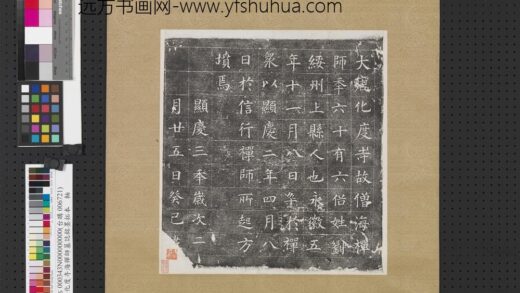 远方书画网-www.yfshuhua.com
大唐化度寺故僧海禪
師年六十有六俗姓劉
綏州上縣人也永徽五
年十一月八日卒於禪
衆以顯慶二年四月八
日於信行禪師所起方
墳焉
顯慶三年歲次二
月廿五日癸巳
000343N000000000(台購 006721)